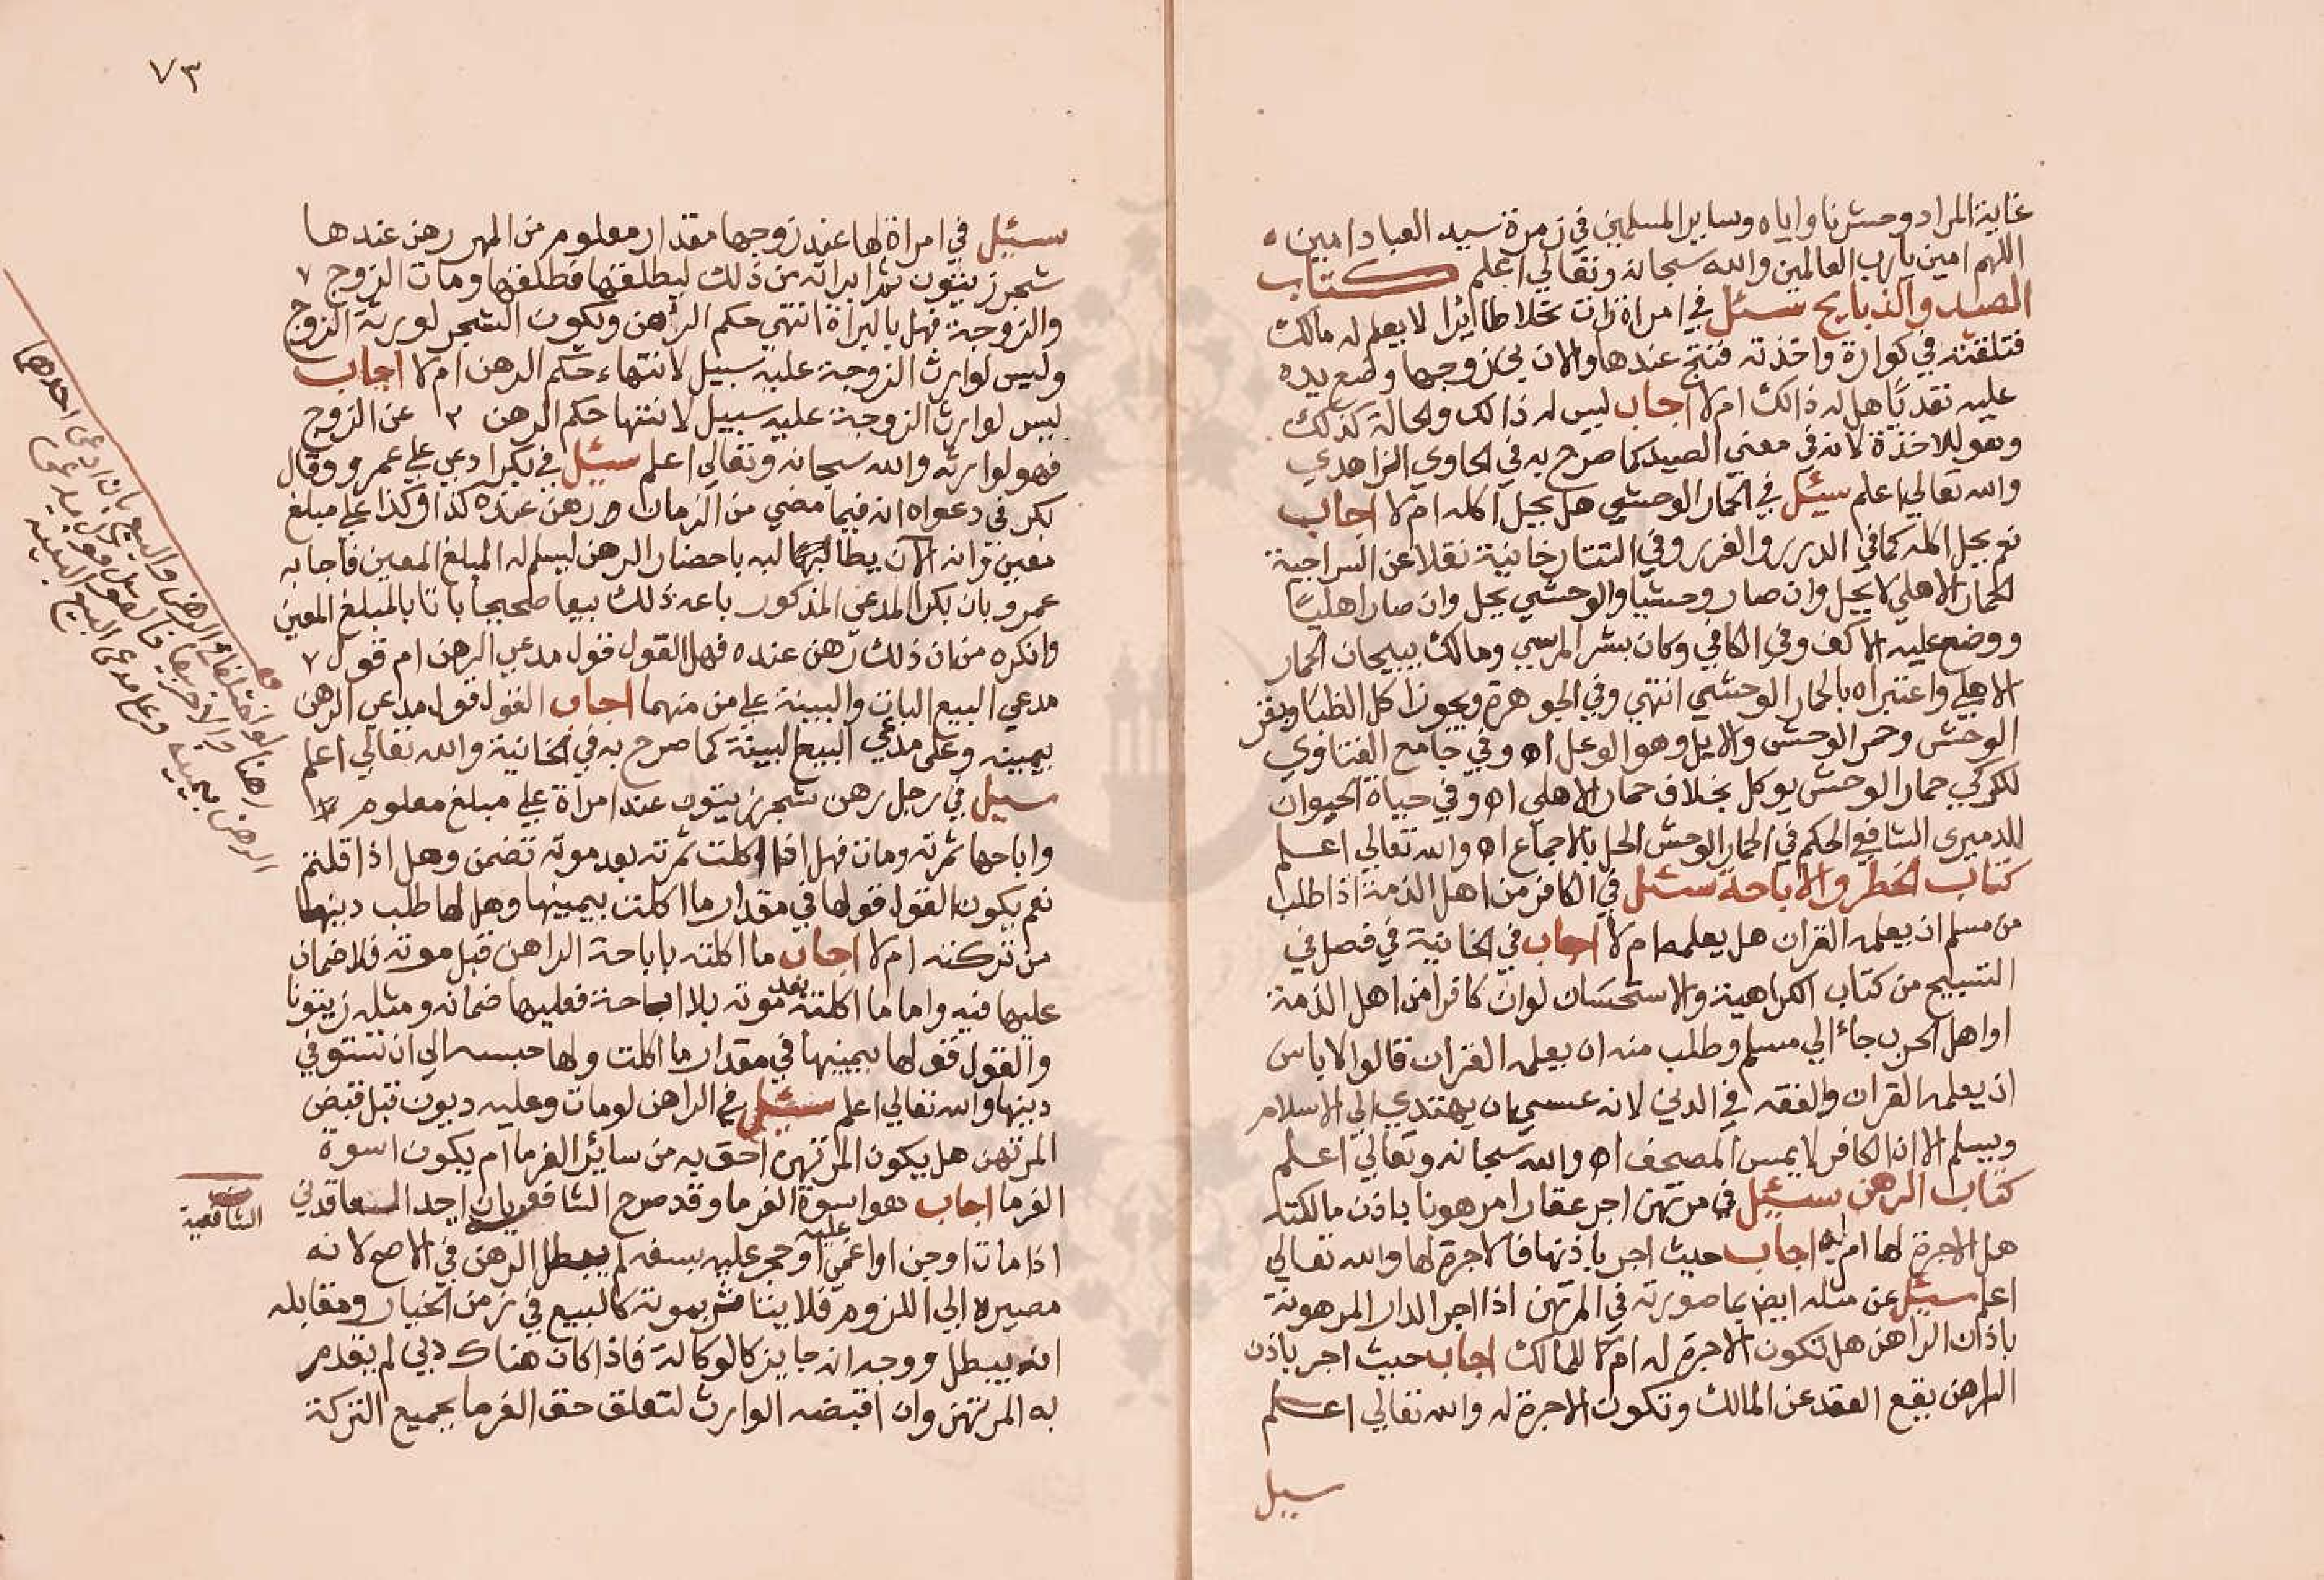 غاية المراد وحشرنا واياه وساير المسلمين في زمرة سيد العباد امين ه
اللهم امين يا رب العالمين والله سبحانه وتعالي اعلم كتاب
الصيد والذبايح سئل في امراة رات نحلا طائرا لا يعلم له مالك
فتلقته في كوارة واخذته فنتج عندها والان يحكي زوجها وضع يده
عليه تقديا هل له ذالك ام لا اجاب ليس له ذالك والحالة كذلك
وهو للاخذة لانه في معني الصيد كما صرح به في الحاوي الزاهدي
والله تعالي اعلم سئل في الحمار الوحشي هل يحل اكله ام لا اجاب
نعم يحل اكله كما في الدرر والغرر وفي التتارخانية نقلا عن السراجية
الحمار الاهلي لا يحل وان صار وحشيا والوحشي يحل وان صار اهليا
ووضع عليه الاكف وفي الكافي وكان بشر المريسي ومالك يبيحان الحمار
الاهلي واعتبراه بالحمار الوحشي انتهي وفي الجوهرة ويجوز اكل الظبا وبقر
الوحش وحمر الوحش والايل وهو الوعل اه وفي جامع الفتاوي
للكركي حمار الوحش يوكل بخلاف حمار الاهلي اه وفي حياة الحيوان
للدميري الشافعي الحكم في الحمار الوحش الحل بالاجماع اه والله تعالي اعلم
كتاب الحظر والاباحة سئل في الكافر من اهل الذمة اذا طلب
من مسلم ان يعلمه القران هل يعلمه ام لا اجاب في الخانية في فصل في
التسبيح من كتاب الكراهية والاستحسان لو ان كافرا من اهل الذمة
او اهل الحرب جاء الي مسلم وطلب منه ان يعلمه القران قالوا لا باس
ان يعلمه القران والفقه في الدين لانه عسي ان يهتدي الي الاسلام
ويسلم الا ان الكافر لا يمس المصحف اه والله سبحانه وتعالي اعلم
كتاب الرهن سئل في مرتهن اجر عقارا مرهونا باذن مالكته
هل الاجرة لها ام له اجاب حيث اجر باذنها فالاجرة لها والله تعالي
اعلم سئل عن مثله ايضا بما صورته في المرتهن اذا اجر الدار المرهونة
باذن الراهن هل تكون الاجرة له ام للمالك اجاب حيث اجر باذن
الراهن يقع العقد عن المالك وتكون الاجرة له والله تعالي اعلم
سيل
٧٣
سئل في امراة لها عند زوجها مقدار معلوم من المهر رهن عندها
شجر زيتون ثم ابراته من ذلك ليطلقها فطلقها ومات الزوج
والزوجة فهل بالبراة انتهي حكم الرهن ويكون الشجر لورثة الزوج
وليس لوارث الزوجة عليه سبيل لانتهاء حكم الرهن ام لا اجاب
ليس لوارث الزوجة عليه سبيل لانتها حكم الرهن عن الزوج
فهو لوارثه والله سبحانه وتعالي اعلم سئل في بكر ادعي علي عمرو وقال
بكر في دعواه انه فيما مضي من الزمان رهن عنده كذا وكذا علي مبلغ
معين وانه الان يطالبه باحضار الرهن ليسلم له المبلغ المعين فاجابه
عمرو بان بكرا المدعي المذكور باعه ذلك بيعا صحيحا باتا بالمبلغ المعين
وانكره من ان ذلك رهن عنده فهل القول قول مدعي الرهن ام قول
مدعي البيع البات والبينة علي من منهما اجاب القول قول مدعي الرهن
بيمينه وعلي مدعي البيع البينة كما صرح به في الخانية والله تعالي اعلم
سيل في رجل رهن شجر زيتون عند امراة علي مبلغ معلوم
واباحها ثمرته ومات فهل اذا اكلت ثمرته بعد موته تضمن وهل اذا قلتم
نعم يكون القول قولها في مقدار ما اكلت بيمينها وهل لها طلب دينها
من تركته ام لا اجاب ما اكلته باباحة الراهن قبل موته فلا ضمان
عليها فيه واما ما اكلته بعد موته بلا اباحة فعليها ضمانه ومثله زيتونا
والقول قولها بيمينها في مقدار ما اكلت ولها حبسه الي ان تستوفي
دينها والله تعالي اعلم سئل في الراهن لو مات وعليه ديون قبل قبض
المرتهن هل يكون المرتهن احق به من ساير الغرما ام يكون اسوة
الغرما اجاب هو اسوة الغرما وقد صرح الشافعية بان احد العاقدين
الشافعية
اذا مات او جن او اغمي عليه او حجر عليه بسفه لم يبطل الرهن في الاصح لانه
مصيره الي اللزوم فلا يتاثر بموته كالبيع في زمن الخيار ومقابله
انه يبطل ووجه انه جايز كالوكالة فاذا كان هناك دين لم يقدم
به المرتهن وان اقبضه الوارث لتعلق حق الغرما بجميع التركة
لو اختلفا في الرهن والبيع بان ادعي احدهما
رهنا والاخر بيعا فالقول قول مدعي
الرهن بيمينه وعلي مدعي البيع البينة